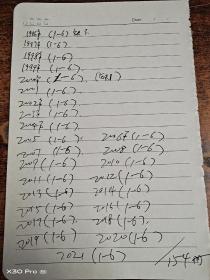 1996年 (1-6)
1997年 (1-6)
1998年 (1-6)
1999年 (1-6)
2000年 (1-6)
2001 (1-6)
2002年 (1-6)
2003年 (1-6)
2004年 (1-6)
2005 (1-6) 2006年 (1-6)
2007 (1-6) 2008 (1-6)
2009 (1-6) 2010 (1-6)
2011 (1-6) 2012 (1-6)
2013 (1-6) 2014 (1-6)
2015 (1-6) 2016 (1-6)
2017 (1-6) 2018 (1-6)
2019 (1-6) 2020 (1-6)
2021 (1-6) /154册
X30 Pro